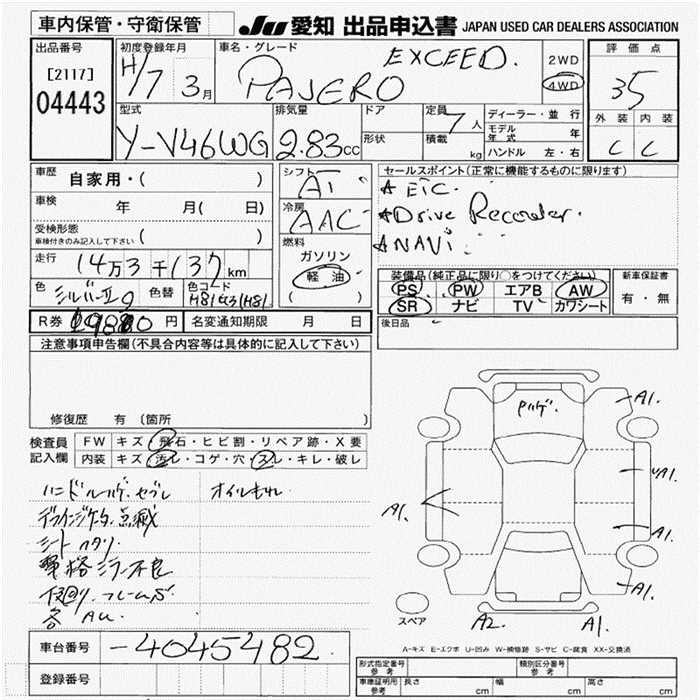 車内保管・守衛保管
JU 愛知 出品申込書 JAPAN USED CAR DEALERS ASSOCIATION
出品番号
[2117]
04443
初度登録年月
H/7 3月
車名・グレード
PAJERO EXCEED.
2WD
4WD
評価点
35
外装 内装
C C
型式
Y-V46WG
排気量
2.83cc
ドア
形状
定員 7人
積載 kg
ディーラー・並行
モデル年式 年
ハンドル 左・右
車歴 自家用・( )
車検 年 月( 日)
受検形態
車検付きのみ記入して下さい ( )
走行 14万3千137km
色 シルバーⅡ9
色替
色コード H81
シフト AT
冷房 AAC
燃料
ガソリン
軽油
( )
セールスポイント(正常に機能するものに限ります)
ETC.
Drive Recorder.
NAVi.
装備品(純正品に限り○をつけてください)
PS PW エアB AW
SR ナビ TV カワシート
新車保証書
有・無
後日品
R券 9880円
名変通知期限 月 日
注意事項申告欄(不具合内容等は具体的に記入して下さい)
修復歴 有 (箇所 )
検査員
記入欄
FW キズ・飛石・ヒビ割・リペア跡・X要
内装 キズ・汚レ・コゲ・穴・スレ・キレ・破レ
ハンドルハゲ.セブレ オイルもれ
点滅
シートヘタリ.
電格ミラー不良
下回り.フレームS
各AU
ハゲ.
A1.
A1.
A1.
A1.
A1.
A2.
A1.
スペア
A-キズ E-エクボ U-凹み W-補修跡 S-サビ C-腐食 XX-交換済
車台番号 -4045482
登録番号
形式指定番号 参考
類別区分番号 参考
車庫証明用 参考 長さ cm 幅 cm 高さ cm